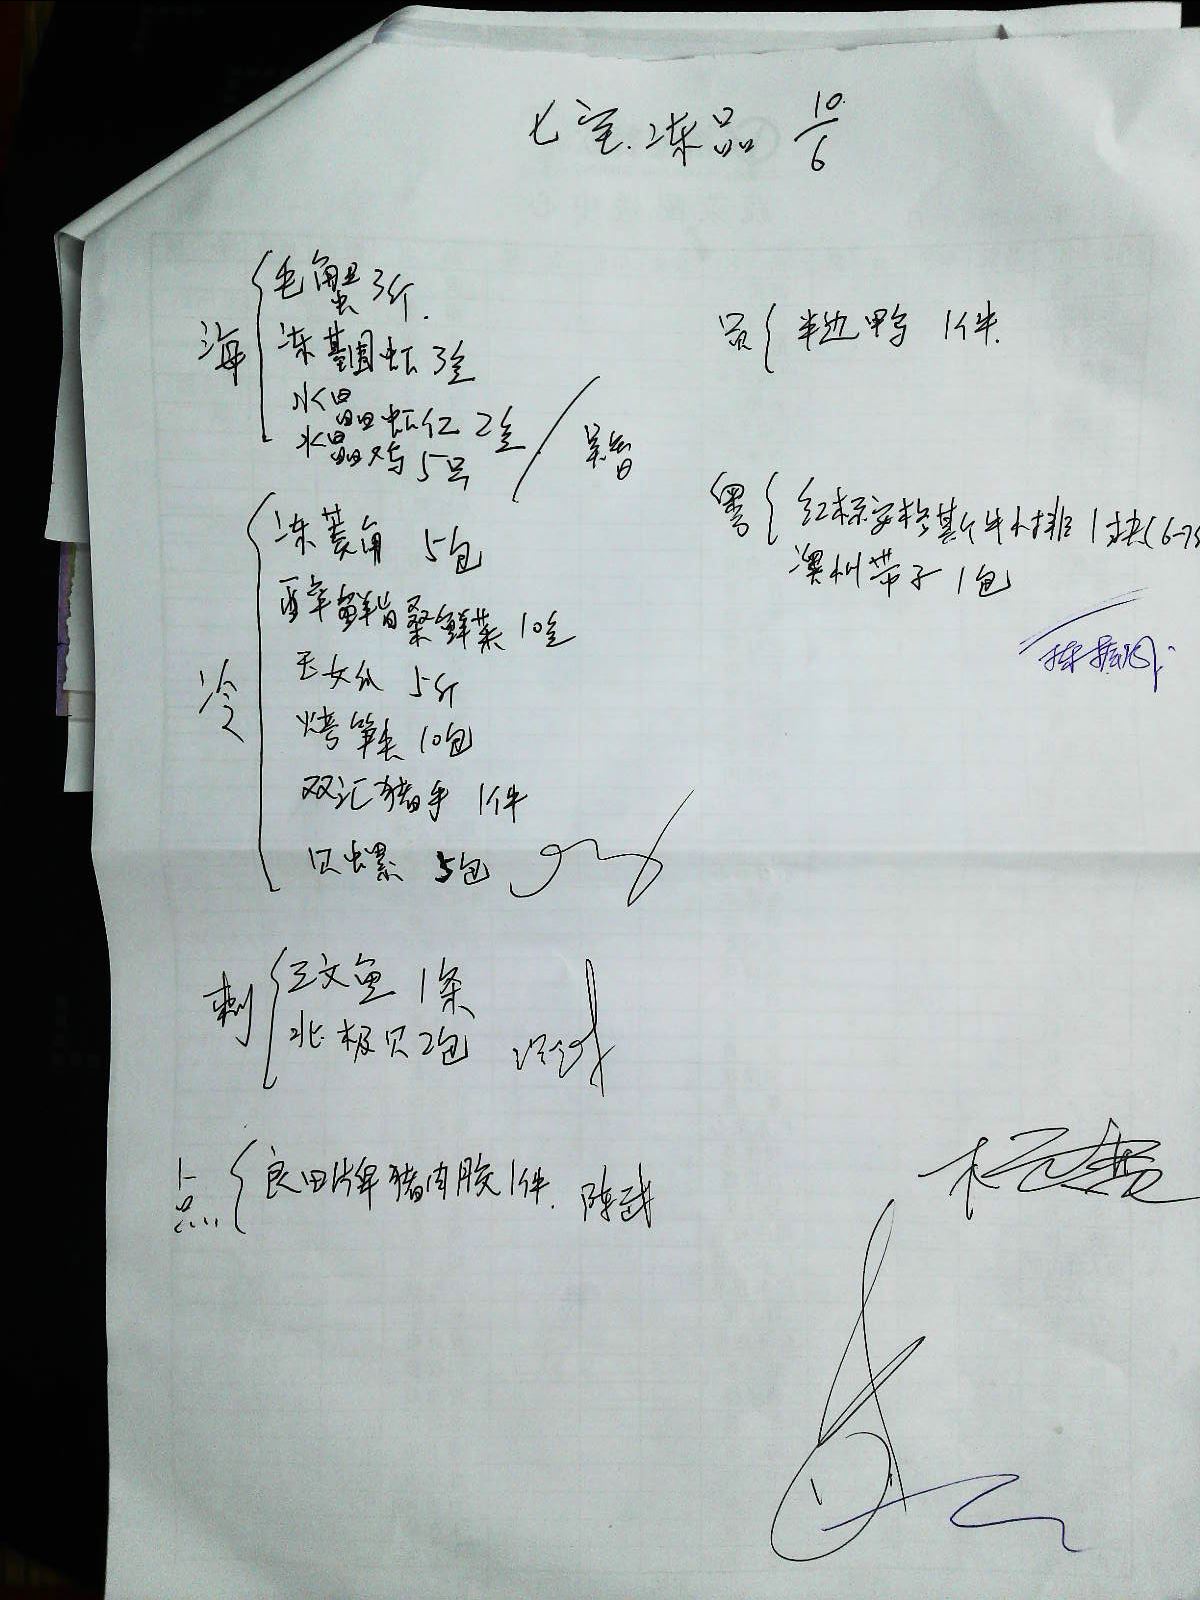 七宝.冻品 10/6
海
毛蟹3斤.
冻基围虾 3盒
水晶虾仁 2盒
水晶鸡 5只
冷
冻菱角 5包
鲜菜 10盒
玉女瓜 5斤
烤笋 10包
双汇猪手 1件
贝螺 5包
刺
三文鱼 1条
北极贝2包
点
良田牌猪肉胶1件. 陈武
员
半边鸭 1件.
粤
红标安格斯牛小排 1块(6-7
澳州带子 1包